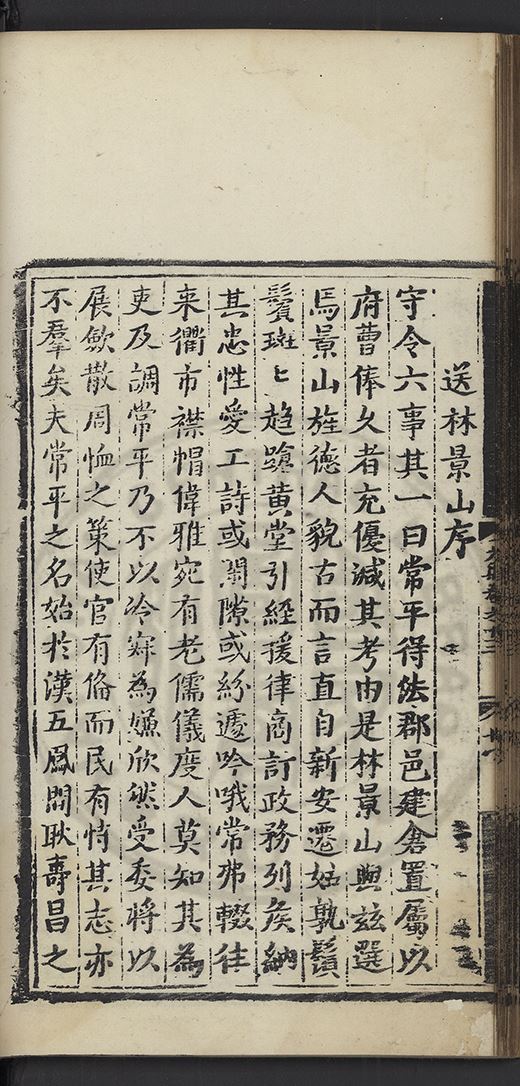 送林景山序
守令六事其一曰常平得法郡邑建倉置屬以
府曹俸乆者充優減其考由是林景山與兹選
焉景山旌德人貌古而言直自新安遷姑孰鬚
鬢斑匕趋蹌黄堂引經援律商訂政務列矦納
其忠性愛工詩或閑隙或紛遽吟哦常弗輟往
来衢市襟帽偉雅宛有老儒儀度人莫知其為
吏及調常平乃不以冷寀為嫌欣然受委將以
展歛散周恤之䇿使官有俻而民有恃其志亦
不羣矣夫常平之名始於漢五鳳間耿壽昌之